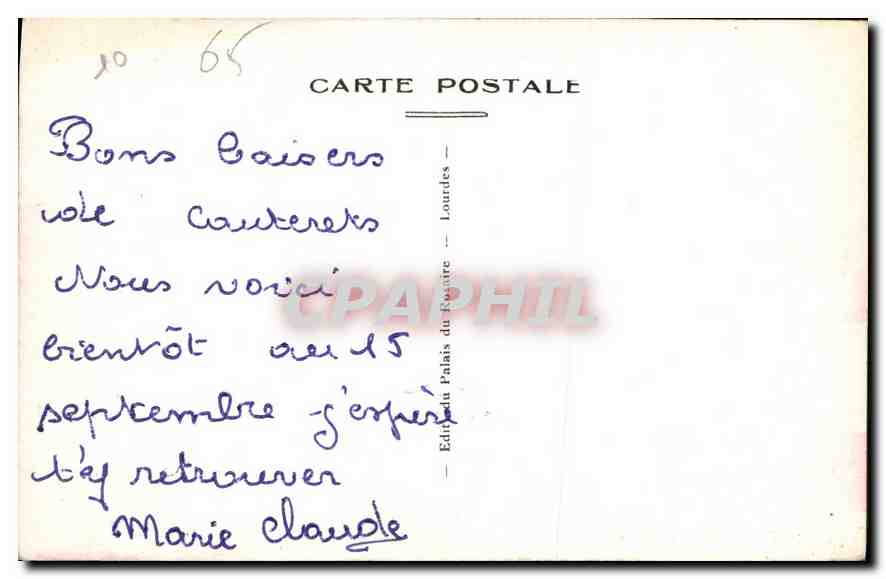 10 65
CARTE POSTALE
Bons baisers
de Cauterets
Nous voici
bientôt au 15
septembre j'espère
t'y retrouver
Marie Claude
— Edit. du Palais du Rosaire — Lourdes —
CPAPHIL